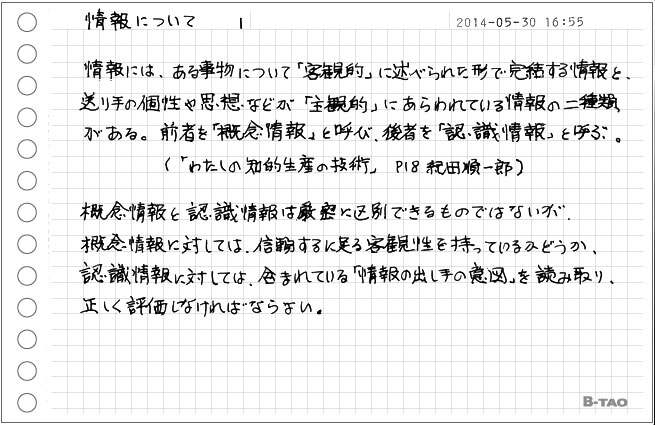 情報について 1 2014-05-30 16:55
情報には、ある事物について「客観的」に述べられた形で完結する情報と、
送り手の個性や思想などが「主観的」にあらわれている情報の二種類
がある。前者を「概念情報」と呼び、後者を「認識情報」と呼ぶ。
(「わたしの知的生産の技術」 P18 紀田順一郎)
概念情報と認識情報は厳密に区別できるものではないが、
概念情報に対しては、信頼するに足る客観性を持っているかどうか、
認識情報に対しては、含まれている「情報の出し手の意図」を読み取り、
正しく評価しなければならない。
B-TAO